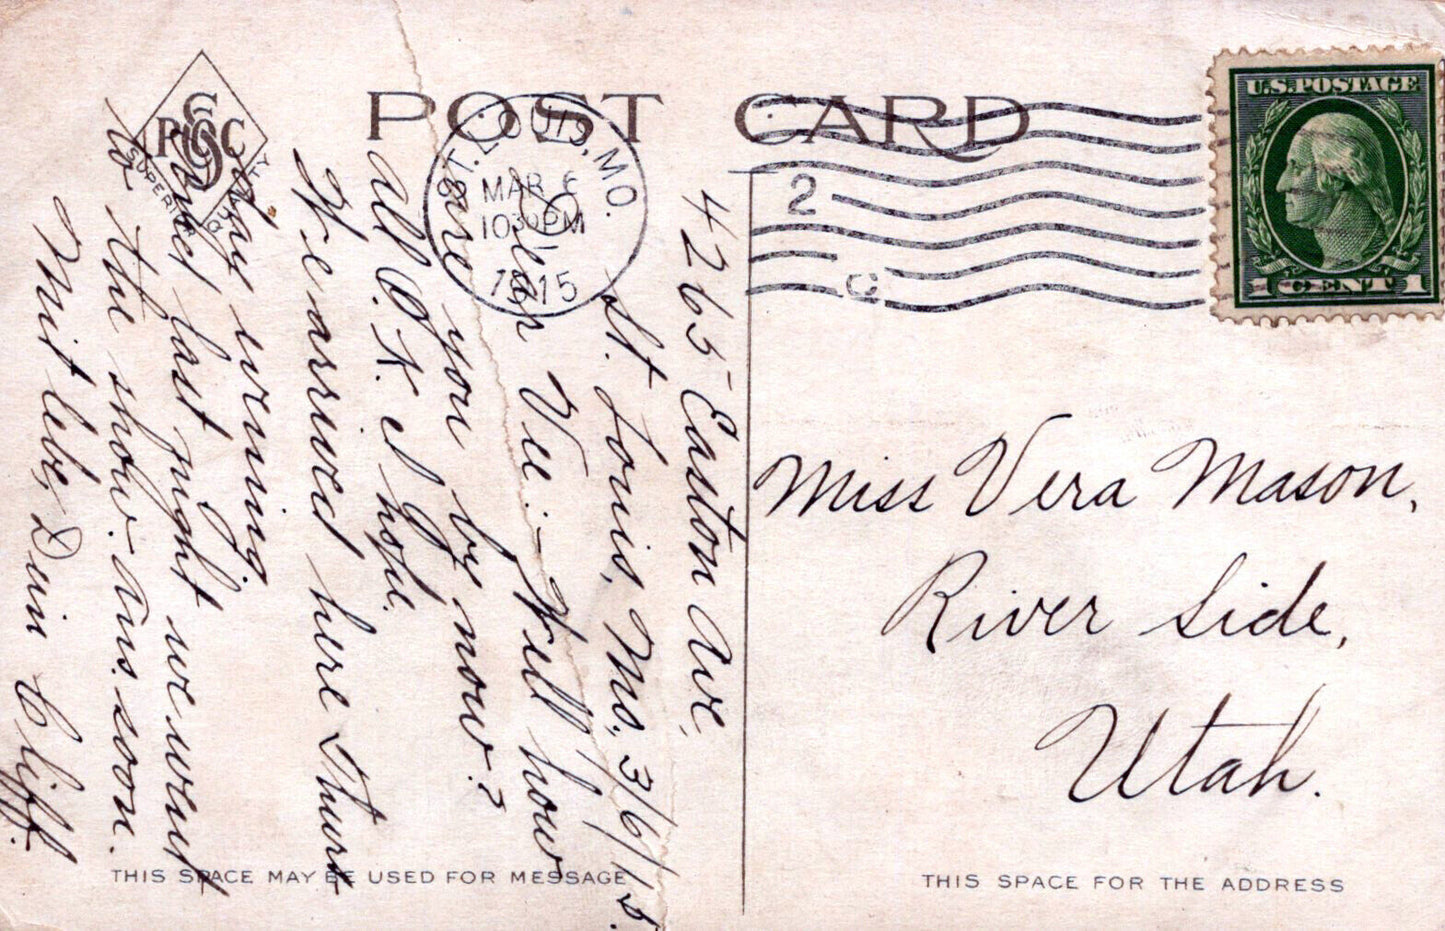 POST CARD
PSCC
SUPERIOR QUALITY
ST. LOUIS, MO.
MAR 6
10 30 PM
1915
2
C
U.S. POSTAGE
1 CENT 1
4265 Easton Ave,
St. Louis, Mo. 3/6/15.
Dear Vee:- Well how
are you by now?
All O.K. I hope.
We arrived here Thurs
day evning
and last night we went
to the show. Ans. soon.
Mit lebe, Dein Cliff.
Miss Vera Mason,
River Side,
Utah.
THIS SPACE MAY BE USED FOR MESSAGE
THIS SPACE FOR THE ADDRESS